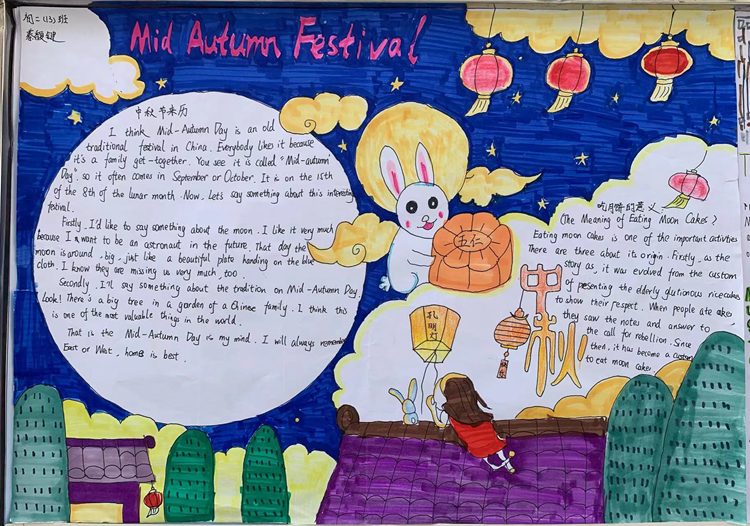 初二(13)班
Mid Autumn Festival
中秋节来历
I think Mid-Autumn Day is an old
traditional festival in China. Everybody likes it because
it's a family get-together. You see it is called "Mid-autumn
Day", so it often comes in September or October. It is on the 15th
of the 8th of the lunar month. Now, Lets say something about this interesting
festival.
Firstly, I'd like to say something about the moon. I like it very much
because I want to be an astronaut in the future. That day the
moon is around, big, just like a beautiful plate handing on the blue
cloth. I know they are missing us very much, too.
Secondly, I'll say something about the tradition on Mid-Autumn Day.
Look! There's a big tree in a garden of a Chinese family. I think this
is one of the most valuable things in the world.
That is the Mid-Autumn Day is my mind. I will always remember
East or West, home is best.
五仁
孔明灯
中秋
吃月饼的意义
(The Meaning of Eating Moon Cakes)
Eating moon cakes is one of the important activities
There are three about its origin. Firstly, as the
story as, it was evolved from the custom
of presenting the elderly glutionous rice cakes
to show their respect. When people ate cakes
they saw the notes and answer to
the call for rebellion. Since
then, it has become a custom
to eat moon cakes